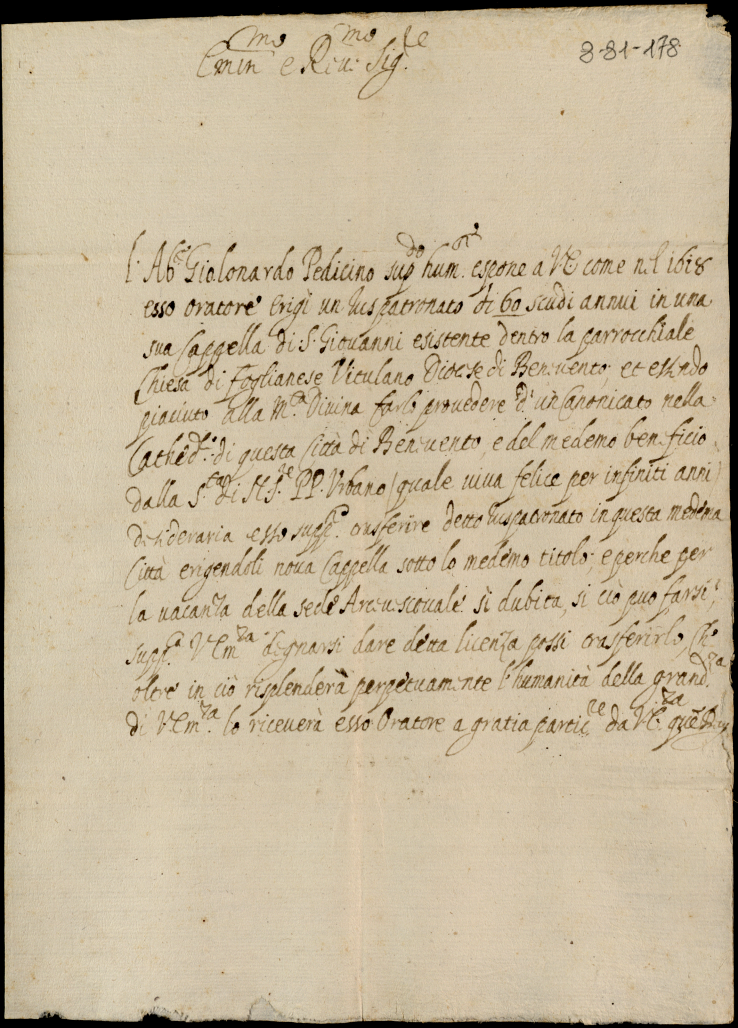 Emin.mo e Reu.mo Sig.re
8-81-178
L'Ab.e Giolonardo Pedicino sup.do hum.te espone a VE come nel 1618
esso oratore erigì un Iuspatronato di 60 scudi annui in una
sua Cappella di S. Giouanni esistente dentro la parrocchiale
Chiesa di Foglianese Vitulano Diocese di Beneuento, et essendo
piaciuto alla M.tà Diuina farlo prouedere d'un Canonicato nella
Cathed.le di questa Città di Beneuento, e del medemo beneficio
dalla S.tà di N.S.re PP. Vrbano (quale viua felice per infiniti anni)
desideraria esso supp.te trasferire detto Iuspatronato in questa medema
Città erigendoli noua Cappella sotto lo medemo titolo; e perche per
la vacanza della sede Arceuescouale si dubita, si ciò puo farsi,
supp.ca V.Em.za degnarsi dare detta licenza possi trasferirlo, che
oltre in ciò risplenderà perpetuamente l'humanità della grand.za
di V.Em.za lo riceuerà esso Oratore a gratia partic.re da VE.za